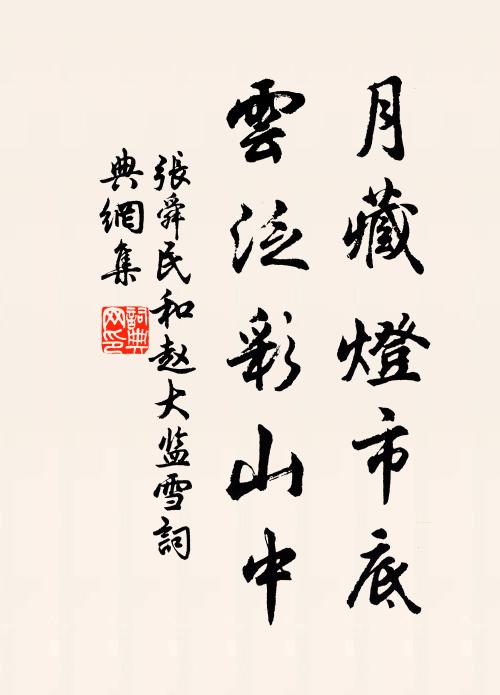 月藏燈市底
雲泛彩山中
張舜民和赵大监雪詞
典網集
詞典
网印